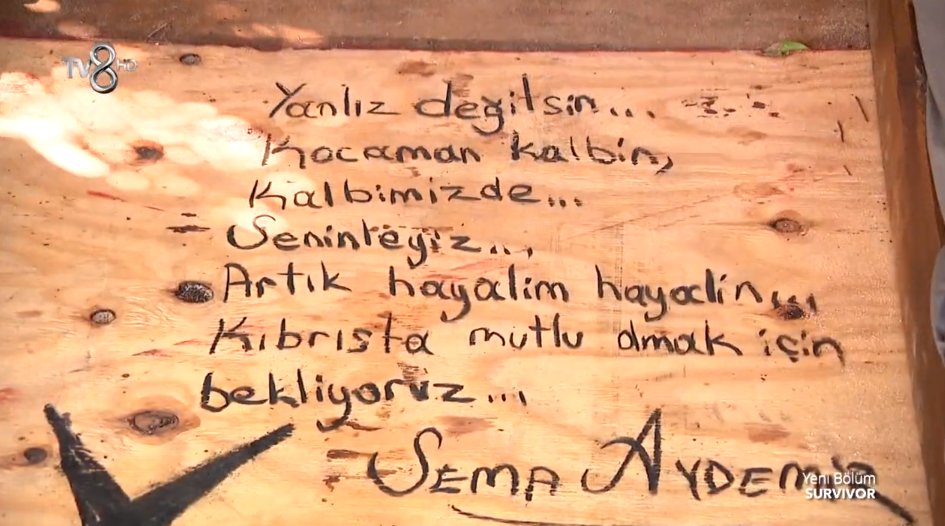 TV8 HD
Yanlız değilsin...
Kocaman kalbin,
Kalbimizde...
Seninleyiz...
Artık hayalim hayalin...
Kıbrısta mutlu olmak için
bekliyoruz...
SEMA AYDEMİR
Yeni Bölüm
SURVIVOR